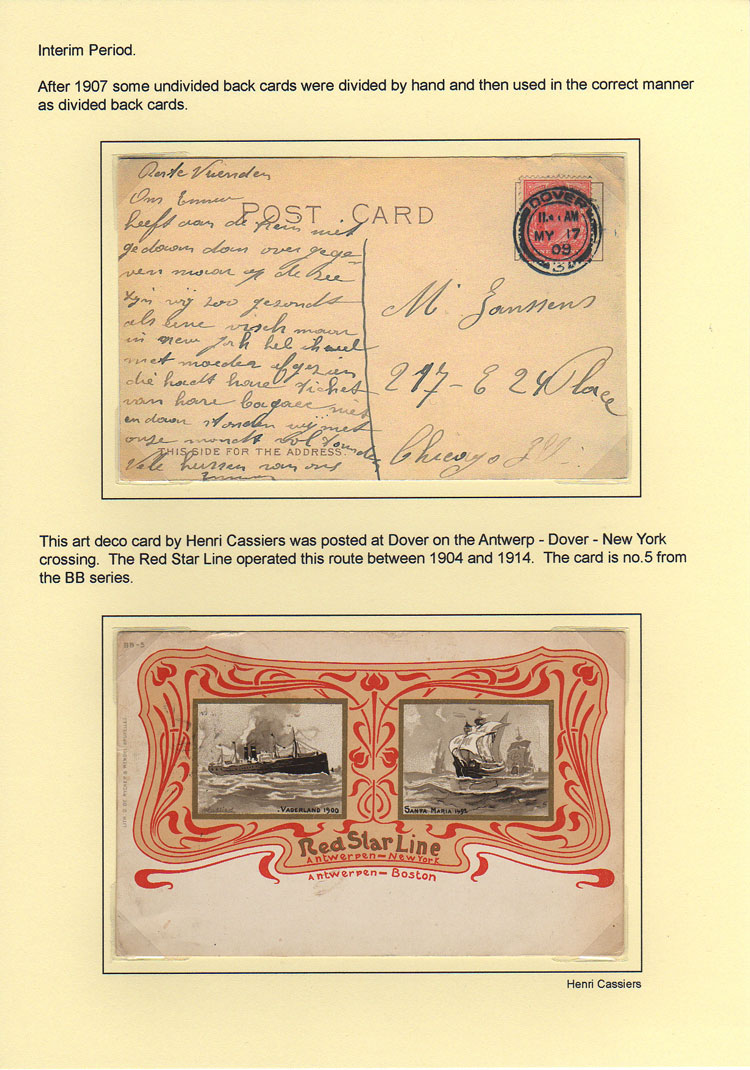 Interim Period.
After 1907 some undivided back cards were divided by hand and then used in the correct manner
as divided back cards.
Vrienden
Ons
POST CARD
heeft aan de met
gedaan dan over gege-
ven maar op de zee
Zijn wij zoo gezondt
als eene visch maar
in new york
met moeder afgezien
die hadt hare Ticket
van hare Bagage niet
en daar stonden wij met
onze mondt vol
THIS SIDE FOR THE ADDRESS.
van ons
DOVER
AM
MY 17
09
3
Mr Janssens
217 - E 24 Place
Chicago Ill.
This art deco card by Henri Cassiers was posted at Dover on the Antwerp - Dover - New York
crossing. The Red Star Line operated this route between 1904 and 1914. The card is no.5 from
the BB series.
BB-5
VADERLAND 1900
SANTA MARIA 1492
Red Star Line
Antwerpen-New York
Antwerpen-Boston
Henri Cassiers